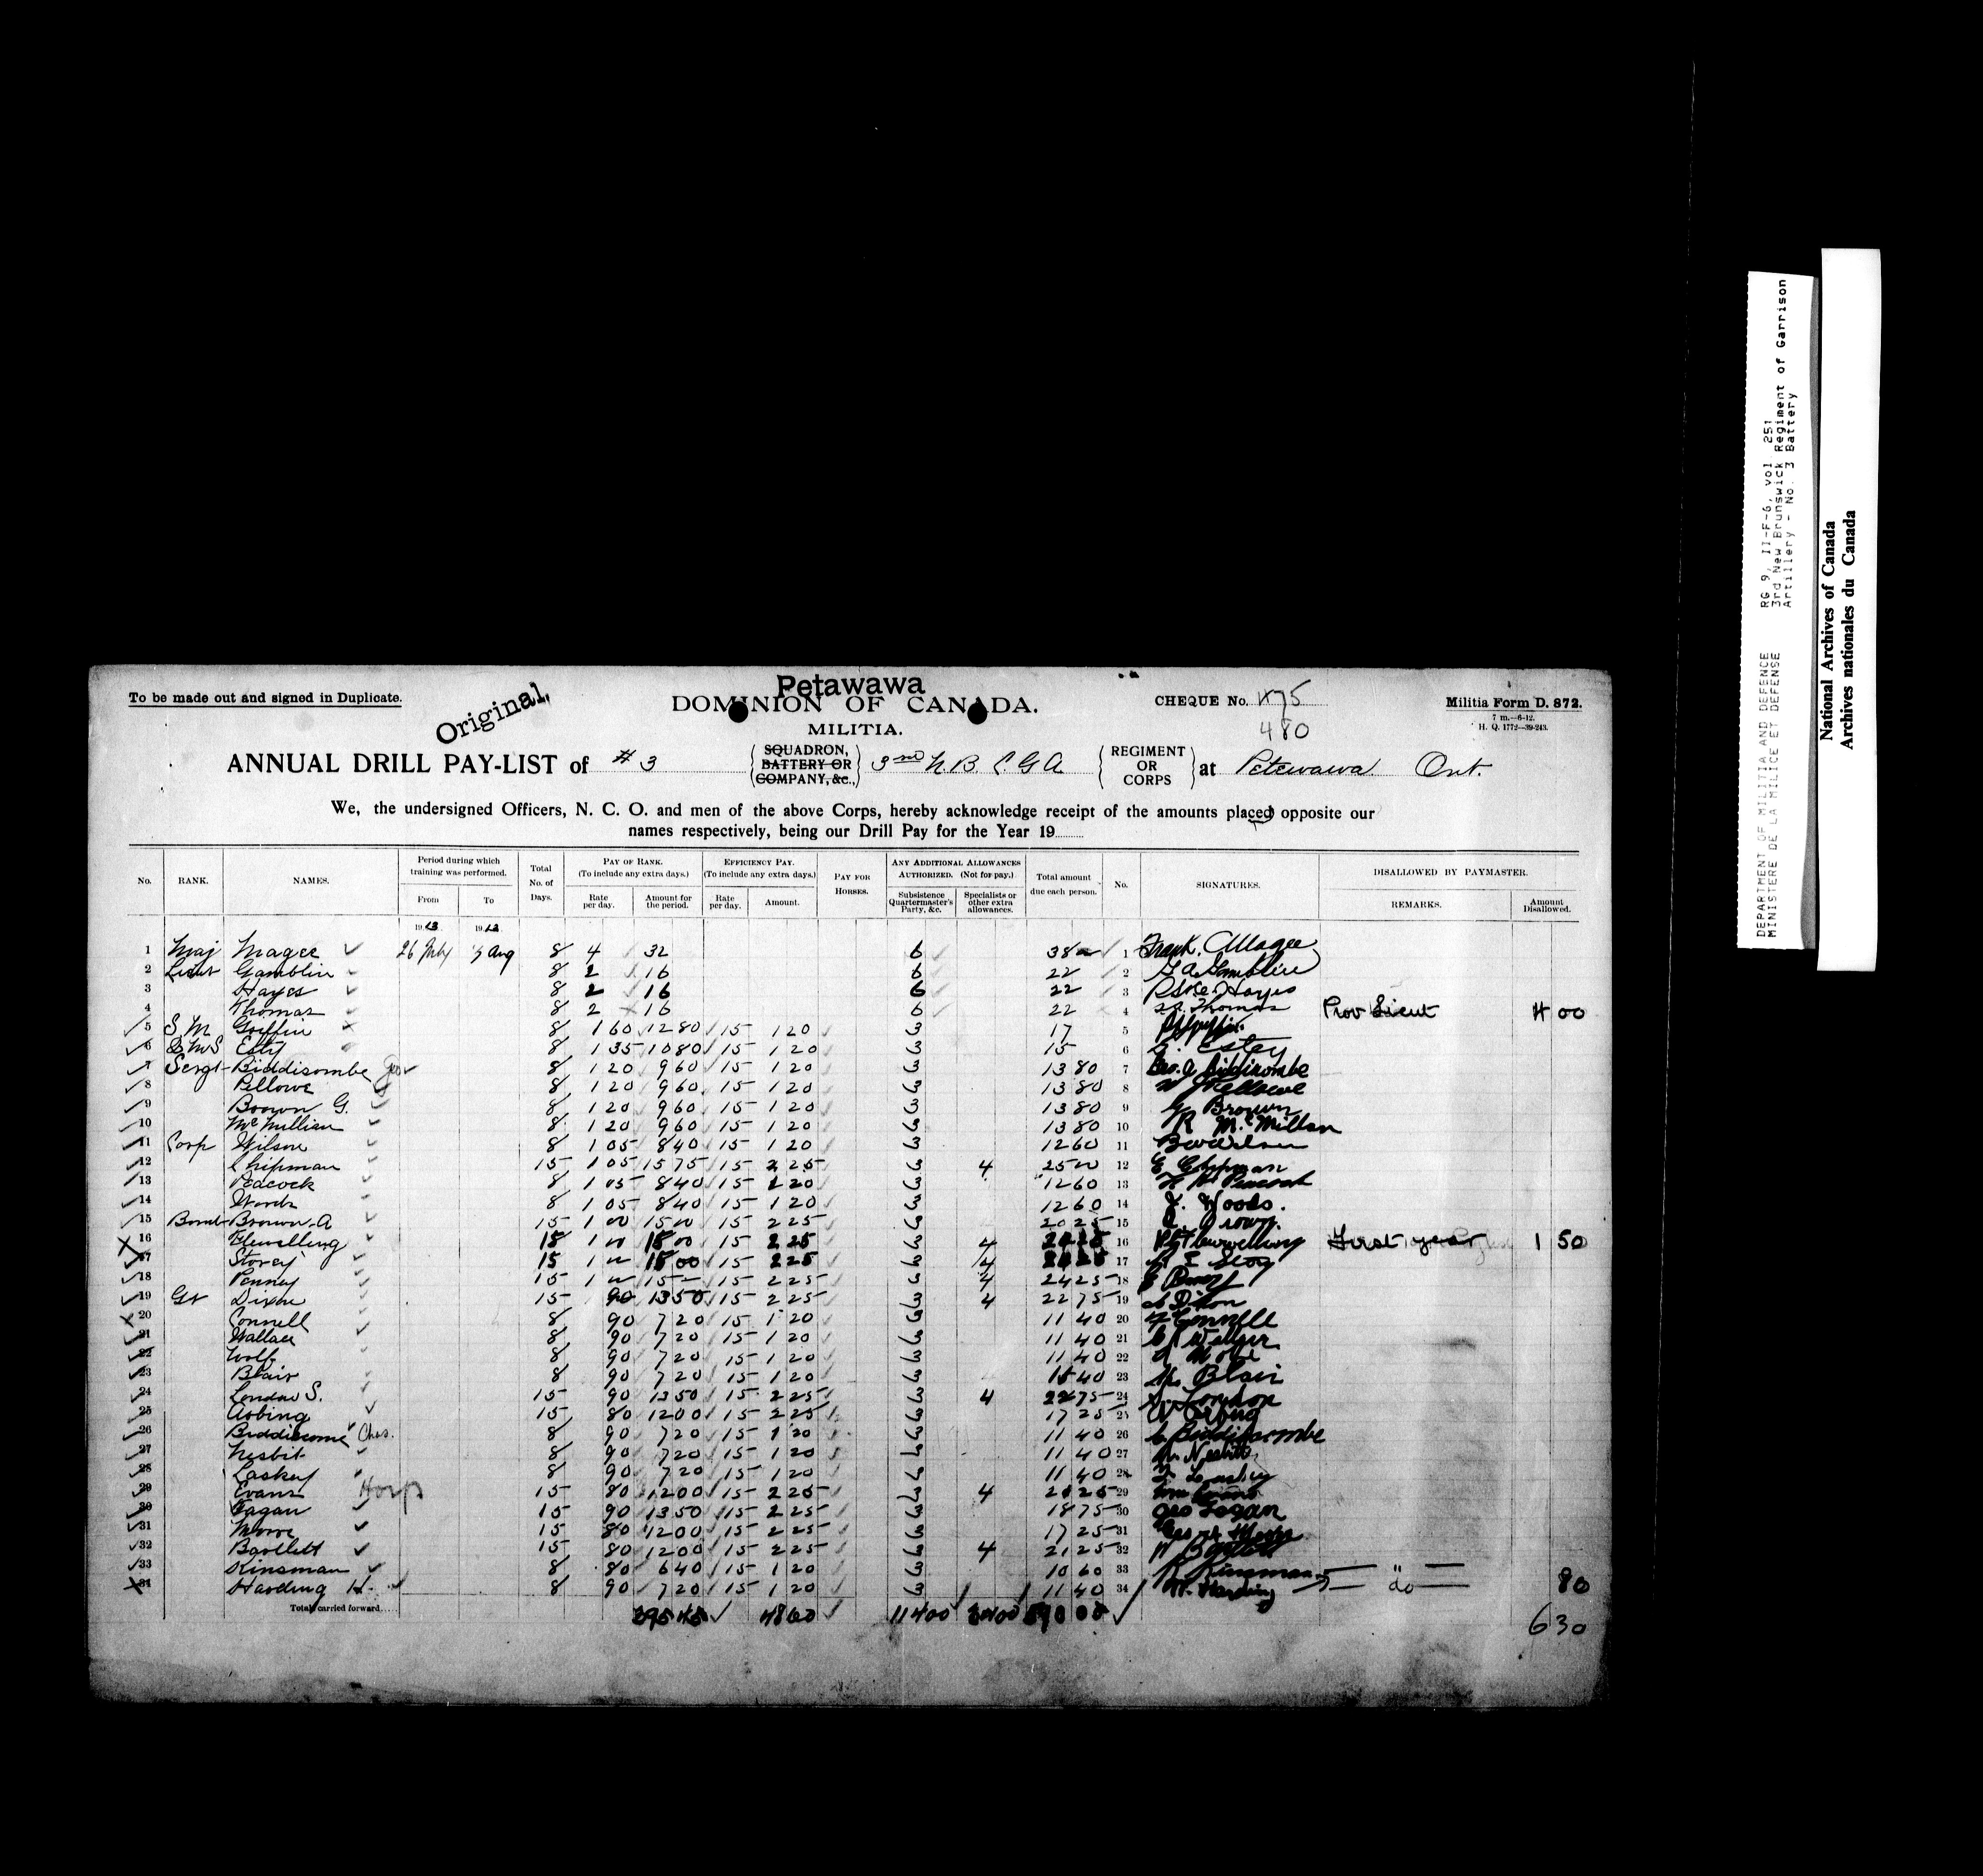 Petawawa
To be made out and signed in Duplicate.
Original.
DOMINION OF CANADA.
CHEQUE No. 475
Militia Form D. 872.
7 m.—6-12.
H. Q. 1772—39-243.
MILITIA.
480
ANNUAL DRILL PAY-LIST of # 3 {SQUADRON, BATTERY OR COMPANY, &c.,} 3rd N. B. C. G. A. {REGIMENT OR CORPS} at Petewawa Ont.
We, the undersigned Officers, N. C. O. and men of the above Corps, hereby acknowledge receipt of the amounts placed opposite our
names respectively, being our Drill Pay for the Year 19
No. RANK. NAMES. Period during which training was performed. From To Total No. of Days. PAY OF RANK. (To include any extra days.) Rate per day. Amount for the period. EFFICIENCY PAY. (To include any extra days.) Rate per day. Amount. PAY FOR HORSES. ANY ADDITIONAL ALLOWANCES AUTHORIZED. (Not for pay.) Subsistence Quartermaster's Party, &c. Specialists or other extra allowances. Total amount due each person. No. SIGNATURES. DISALLOWED BY PAYMASTER. REMARKS. Amount Disallowed.
1913 1913
1 Maj Magee 26 July Aug 8 4 32 6 38 1 Frank C Magee
2 Lieut Gamblin 8 2 16 6 22 2 G A Gamblin
3 Hayes 8 2 16 6 22 3 Hayes
4 Thomas 8 2 16 6 22 4 Thomas Prov Lieut 4 00
5 S. M Griffin 8 1 60 12 80 15 1 20 3 17 5
6 Q M S Esty 8 1 35 10 80 15 1 20 3 15 6 Estey
7 Sergt Biddiscombe Geo 8 1 20 9 60 15 1 20 3 13 80 7 Geo. A Biddiscombe
8 Pellowe 8 1 20 9 60 15 1 20 3 13 80 8 W J Pellowe
9 Brown G. 8 1 20 9 60 15 1 20 3 13 80 9 G Brown
10 McMillian 8 1 20 9 60 15 1 20 3 13 80 10 R McMillan
11 Corp Wilson 8 1 05 8 40 15 1 20 3 12 60 11
12 Chipman 15 1 05 15 75 15 2 25 3 4 25 00 12 E Chipman
13 Peacock 8 1 05 8 40 15 1 20 3 12 60 13 Peacock
14 Woods 8 1 05 8 40 15 1 20 3 12 60 14 J. Woods.
15 Bomb Brown A 15 1 00 15 00 15 2 25 3 20 25 15 Brown.
16 Flewelling 15 1 00 15 00 15 2 25 3 4 24 25 16 Flewwelling First year 1 50
17 Storey 15 1 00 15 00 15 2 25 3 4 24 25 17
18 Penney 15 1 00 15 00 15 2 25 3 4 24 25 18
19 Gr Dixon 15 90 13 50 15 2 25 3 4 22 75 19 Dixon
20 Connell 8 90 7 20 15 1 20 3 11 40 20 Connell
21 Wallace 8 90 7 20 15 1 20 3 11 40 21
22 Wolf 8 90 7 20 15 1 20 3 11 40 22
23 Blair 8 90 7 20 15 1 20 3 11 40 23 Blair
24 London S. 15 90 13 50 15 2 25 3 4 22 75 24 S. London
25 Arbing 15 80 12 00 15 2 25 3 17 25 25 Arbing
26 Biddiscome Chas. 8 90 7 20 15 1 20 3 11 40 26 C. Biddiscombe
27 Nesbit 8 90 7 20 15 1 20 3 11 40 27 Nesbitt
28 Laskey 8 90 7 20 15 1 20 3 11 40 28 Laskey
29 Evans 15 80 12 00 15 2 25 3 4 21 25 29 Wm Evans
30 Fagan 15 90 13 50 15 2 25 3 18 75 30 Geo Fagan
31 15 80 12 00 15 2 25 3 17 25 31
32 Bartlett 15 80 12 00 15 2 25 3 4 21 25 32 Bartlett
33 Kinsman 8 80 6 40 15 1 20 3 10 60 33 R Kinsman
34 Harding H. 8 90 7 20 15 1 20 3 11 40 34 H. Harding — do — 80
Total carried forward 395 45 48 60 114 00 590 00 6 30
DEPARTMENT OF MILITIA AND DEFENCE
MINISTERE DE LA MILICE ET DEFENSE
RG 9, II-F-6, vol 251
3rd New Brunswick Regiment of Garrison
Artillery - No. 3 Battery
National Archives of Canada
Archives nationales du Canada